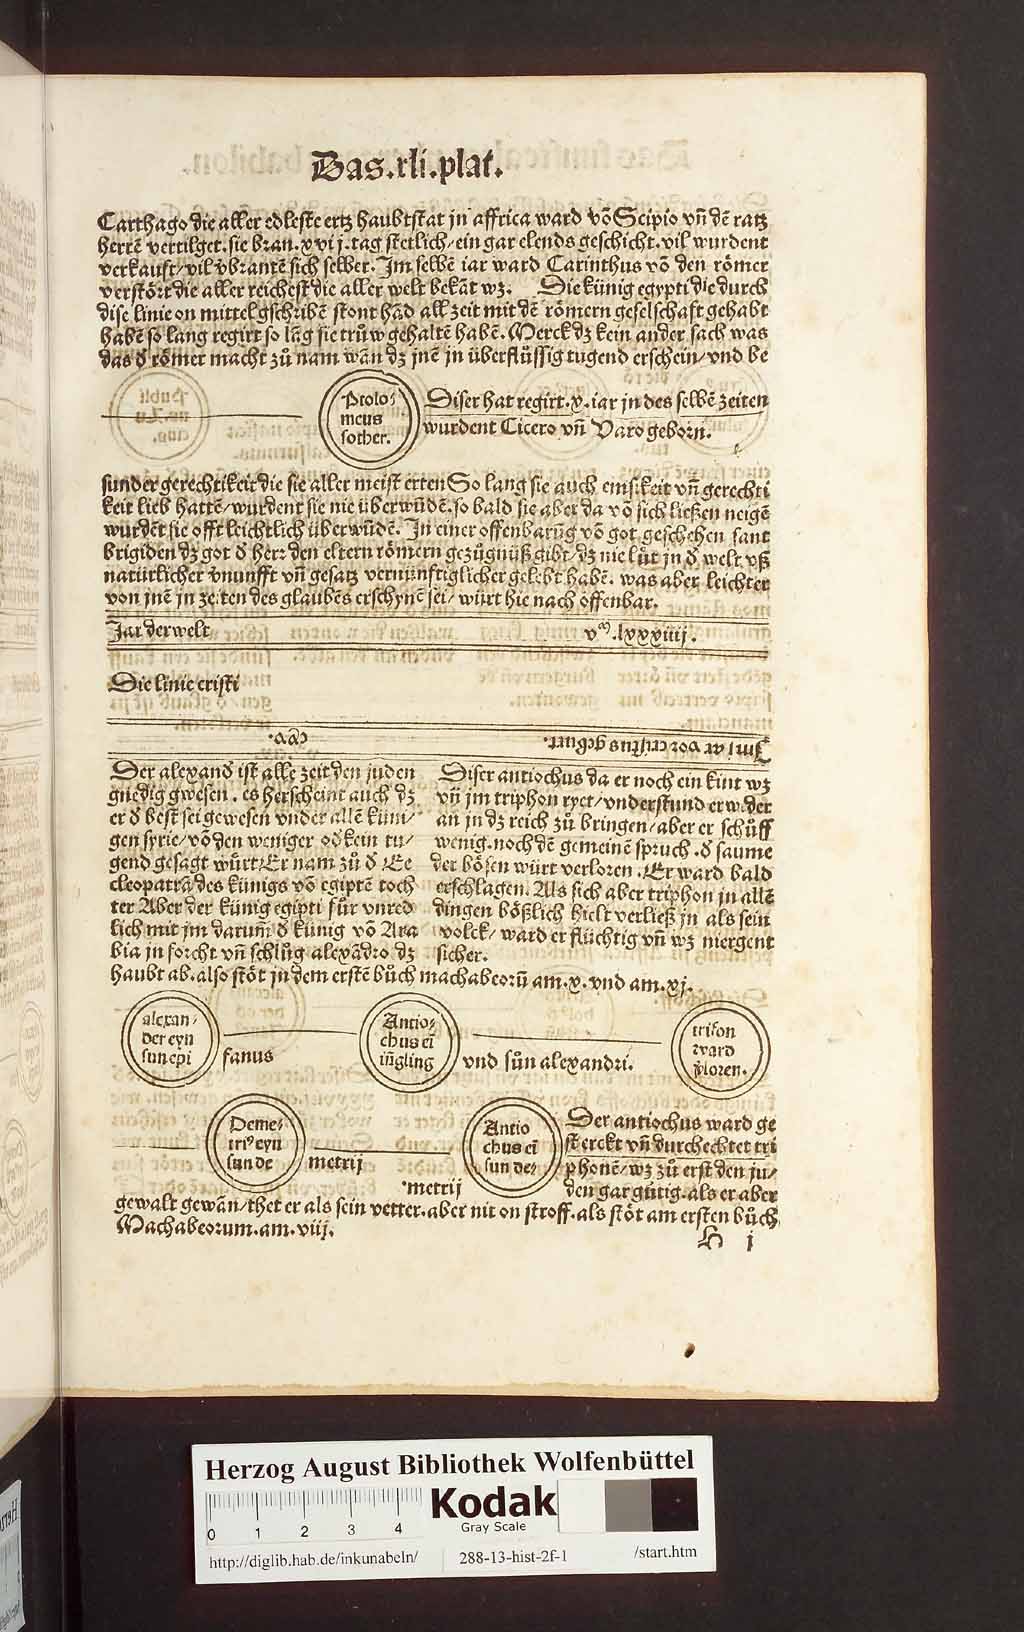 Das .xli. plat.
Carthago die aller edleste ertz haubtstat jn affrica ward võ Scipio vñ dẽ ratz
herrẽ vertilget. sie bran .xvij. tag stetlich/ ein gar elends geschicht. vil wurdent
verkauft/ vil v̄brantẽ sich selber. Im selbẽ iar ward Carinthus võ den römer
verstört die aller reichest die aller welt bekãt wz. Die künig egypti die durch
dise linie on mittel gschribẽ stont hãd all zeit mit dẽ römern geselschaft gehabt
habẽ so lang regirt so lãg sie trůw gehaltẽ habẽ. Merck dz kein ander sach was
das d̕ römer macht zů nam wãn dz jnẽ jn überflüssig tugend erschein/ vnd be
Ptolo⸗
meus
sother.
Diser hat regirt .x. iar jn des selbẽ zeiten
wurdent Cicero vñ Varo geborn.
sunder gerechtikeit die sie aller meist erten So lang sie auch emsikeit vñ gerechti
keit lieb hattẽ/ wurdent sie nie überwũdẽ. so bald sie aber da võ sich ließen neigẽ
wurdẽt sie offt leichtlich überwũdẽ. In einer offenbarũg võ got geschehen sant
brigiden dz got d̕ herz den eltern römern gezügnüß gibt/ dz nie lüt jn d̕ welt vß
natürlicher v̄nunfft vñ gesatz vernünftiglicher gelebt habẽ. was aber leichter
von jnẽ jn zeiten des glaubẽs erschynẽ sei/ würt hie nach offenbar.
Jar der welt
vᵐ .lxxxiiij.
Die linie cristi
Im iar vor cristus geburt.
cxv.
Der alexand̕ ist alle zeit den juden
gnedig gwesen. es herscheint auch dz
er d̕ best sei gewesen vnder allẽ küni/
gen syrie/ võ den weniger od̕ kein tu/
gend gesagt würt Er nam zů d̕ Ee
cleopatrã des künigs võ egiptẽ toch
ter Aber der künig egipti für vnred
lich mit jm darum̄ d̕ künig võ Ara
bia jn forcht vñ schlůg alexãdro dz
haubt ab. also stöt jn dem erstẽ bůch machabeorũ am .x. vnd am .xj.
Diser antiochus da er noch ein kint wz
vñ jm triphon ryet/ vnderstund er wider
an jn dz reich zů bringen/ aber er schůff
wenig. noch dẽ gemeinẽ spruch. d̕ saume
der bösen würt verloren. Er ward bald
erschlagen. Als sich aber triphon jn allẽ
dingen bößlich hielt verließ jn als sein
volck/ ward er flüchtig vñ wz niergent
sicher.
alexan/
der eyn
sun epi
fanus
Antio⸗
chus eī
iũgling
vnd sün alexandri.
trifon
ward
v̄loren.
Deme⸗
tri⁹ eyn
sun de
metrij
Antio
chus eī
sun de⸗
metrij
Der antiochus ward ge
sterckt vñ durchechtet tri
phonẽ/ wz zů erst den ju/
den gar gütig. als er aber
gewalt gewãn/ thet er als sein vetter. aber nit on stroff. als stöt am ersten bůch
Machabeorum. am .viij.
H j
Herzog August Bibliothek Wolfenbüttel
0 1 2 3 4
Kodak
Gray Scale
http://diglib.hab.de/inkunabeln/
288-13-hist-2f-1
/start.htm